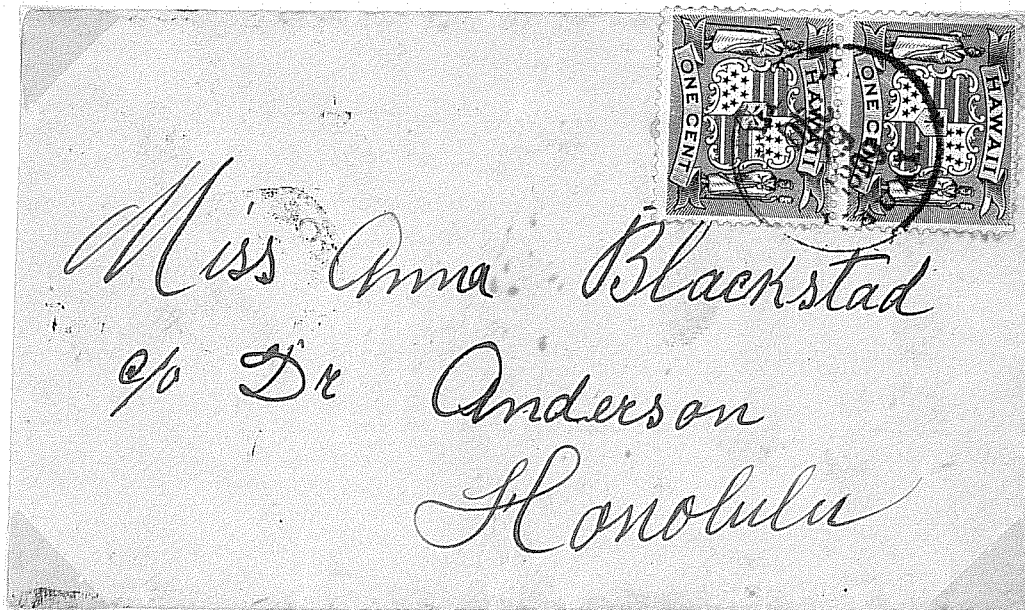 HAWAII
ONE CENT
HAWAII
ONE CENT
Miss Anna Blackstad
c/o Dr Anderson
Honolulu